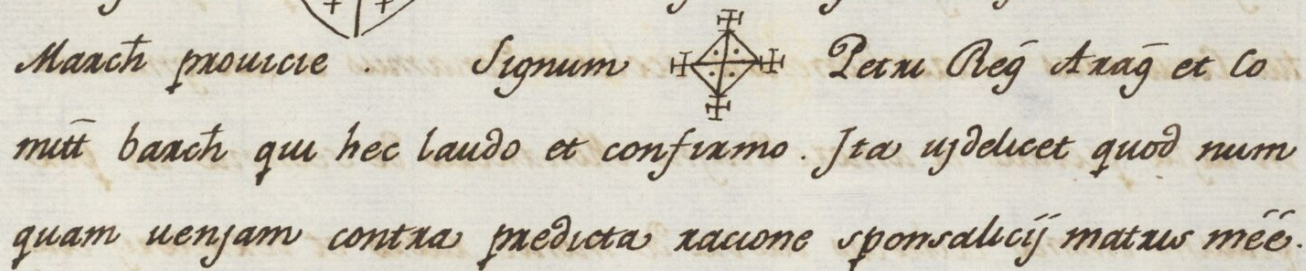 March̄ prouicie . Signum Petri Reḡ Araḡ et Co
mitt̄ barch̄ qui hec laudo et confirmo. Ita ujdelicet quod num
quam uenjam contra predicta racione sponsalicij matris méé.